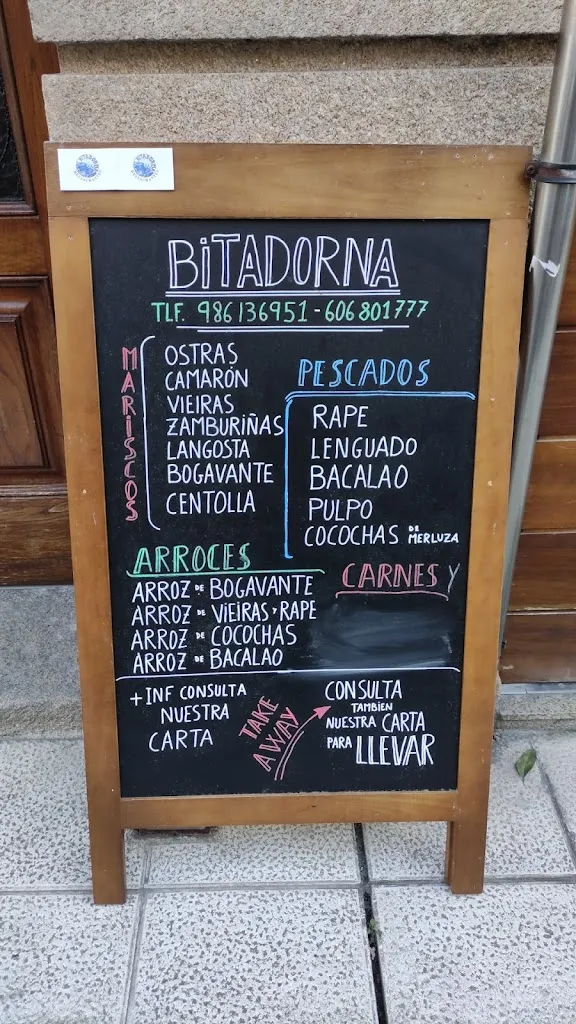 BiTADORNA
TLF. 986136951 - 606801777
MARiSCOS
OSTRAS
CAMARÓN
VIEIRAS
ZAMBURIÑAS
LANGOSTA
BOGAVANTE
CENTOLLA
PESCADOS
RAPE
LENGUADO
BACALAO
PULPO
COCOCHAS DE MERLUZA
ARROCES
ARROZ DE BOGAVANTE
ARROZ DE ViEIRAS Y RAPE
ARROZ DE COCOCHAS
ARROZ DE BACALAO
CARNES Y
+ INF CONSULTA
NUESTRA
CARTA
TAKE
AWAY
CONSULTA
TAMBIEN
NUESTRA CARTA
PARA LLEVAR